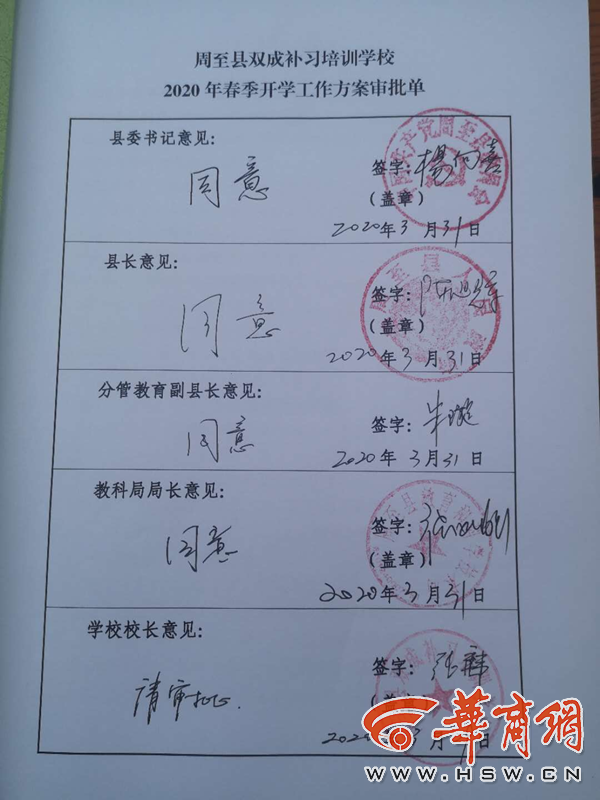 周至县双成补习培训学校
2020年春季开学工作方案审批单
县委书记意见:
同意
签字:
(盖章)
2020年3月31日
县长意见:
同意
签字:
(盖章)
2020年3月31日
分管教育副县长意见:
同意
签字:朱璇
2020年3月31日
教科局局长意见:
同意
签字:
(盖章)
2020年3月31日
学校校长意见:
请审批.
签字:张
2020
月
日
華商網
WWW.HSW.CN